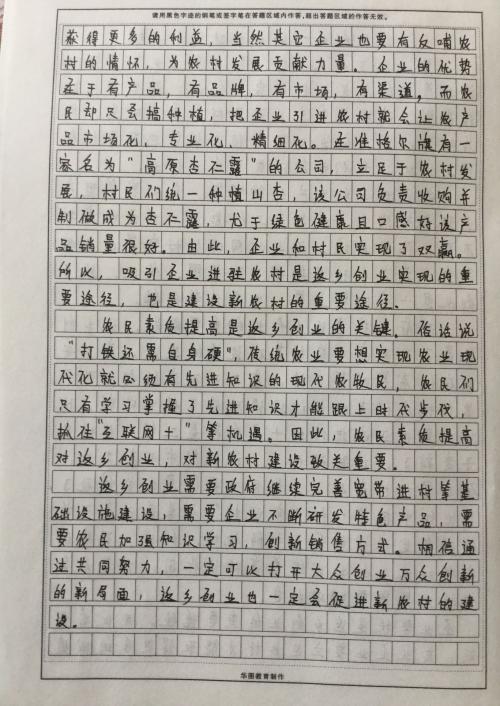 请用黑色字迹的钢笔或签字笔在答题区域内作答,超出答题区域的作答无效。
获得更多的利益，当然其它企业也要有反哺农
村的情怀，为农村发展贡献力量。企业的优势
在于有产品，有品牌，有市场，有渠道。而农
民却只会搞种植，把企业引进农村就会让农产
品市场化，专业化，精细化。在准格尔旗有一
家名为“高原杏仁露”的公司，立足于农村发
展，村民们统一种植山杏，该公司负责收购并
制做成为杏仁露，尤于绿色健康且口感好该产
品销量很好。由此，企业和村民实现了双赢。
所以，吸引企业进驻农村是返乡创业实现的重
要途径，也是建设新农村的重要途径。
农民素质提高是返乡创业的关键。俗话说
“打铁还需自身硬”，传统农业要想实现农业现
代化就必须有先进知识的现代农牧民，农民们
只有学习掌握了先进知识才能跟上时代步伐，
抓住“互联网+”等机遇。因此，农民素质提高
对返乡创业，对新农村建设致关重要。
返乡创业需要政府继续完善宽带进村等基
础设施建设，需要企业不断研发特色产品，需
要农民加强知识学习，创新销售方式。相信通
过共同努力，一定可以打开大众创业万众创新
的新局面，返乡创业也一定会促进新农村的建
设。
华图教育制作